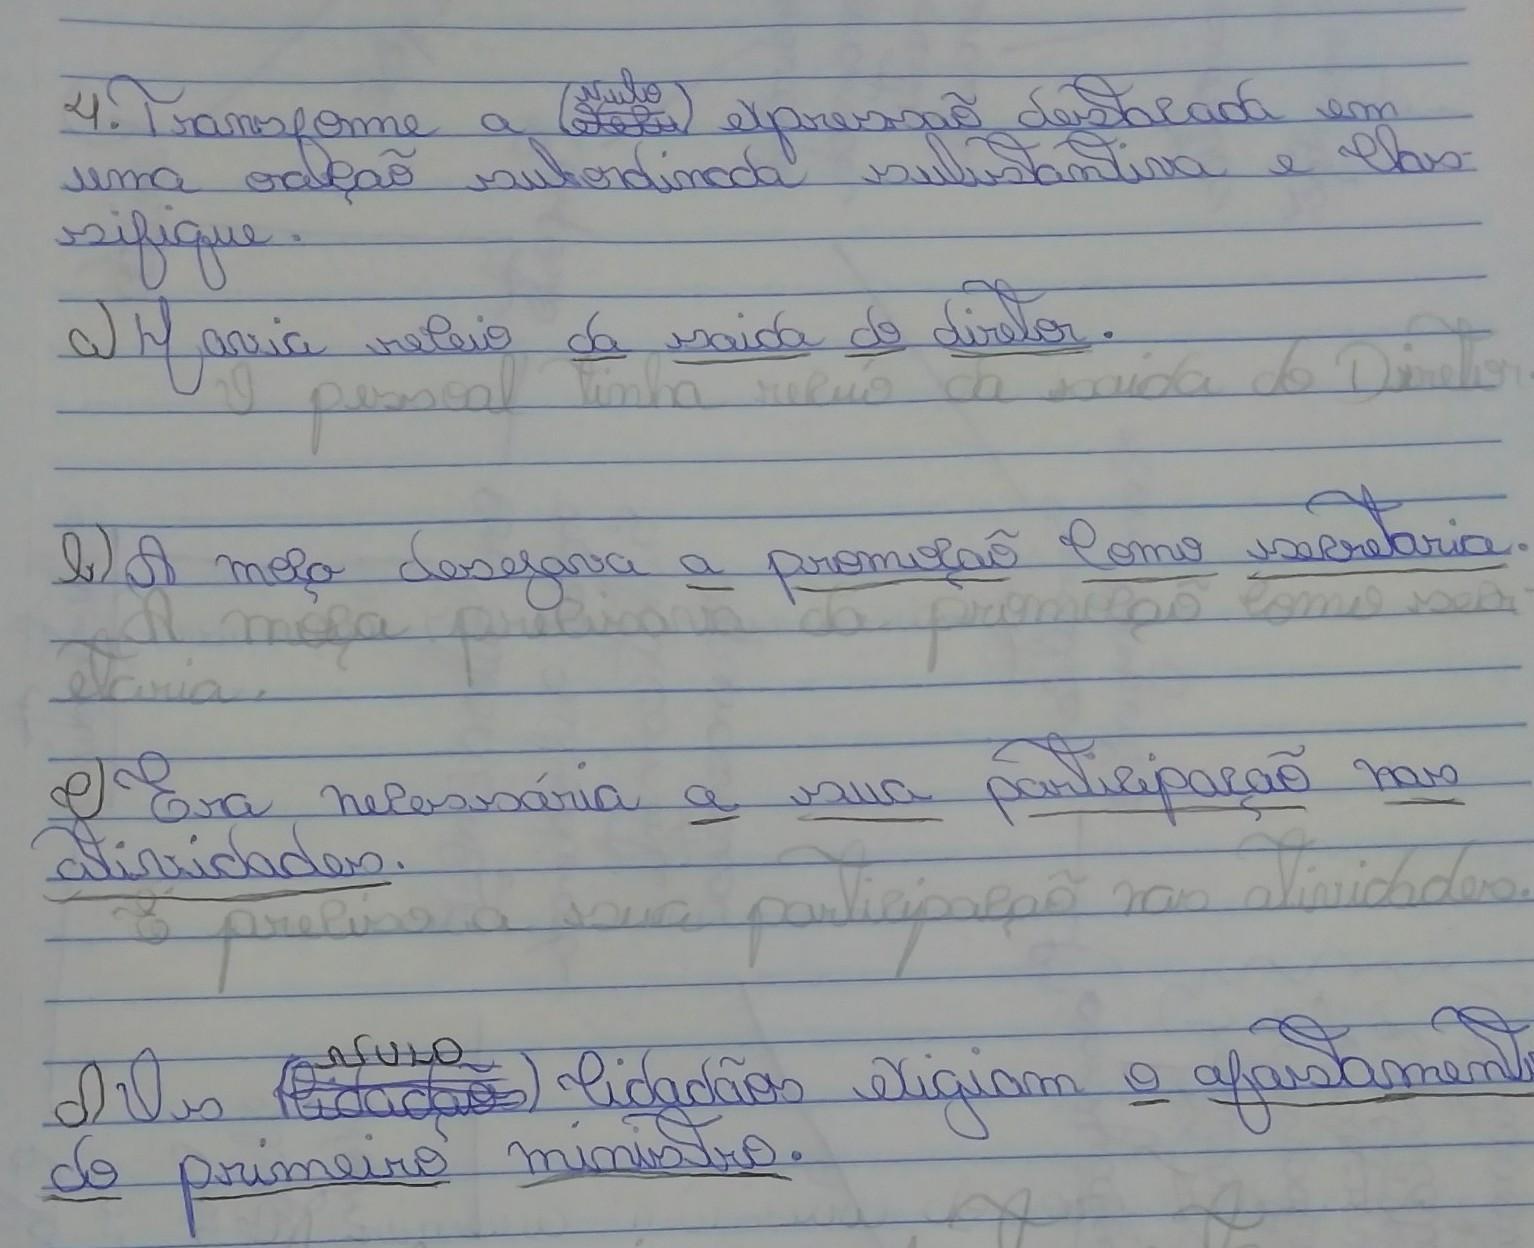 4. Transforme a (Nulo) expressão destacada em
uma oração subordinada substantiva e clas-
sifique.
a) Havia receio da saida do diretor.
O pessoal tinha receio da saida do Diretor.
b) A moça desejava a promoção como secretaria.
A moça precisava da promoção como secr
etaria.
c) Era necessária a sua participação nas
atividades.
É preciso a sua participação nas atividades.
d) Os (NULO) cidadãos exigiam o afastament
do primeiro ministro.